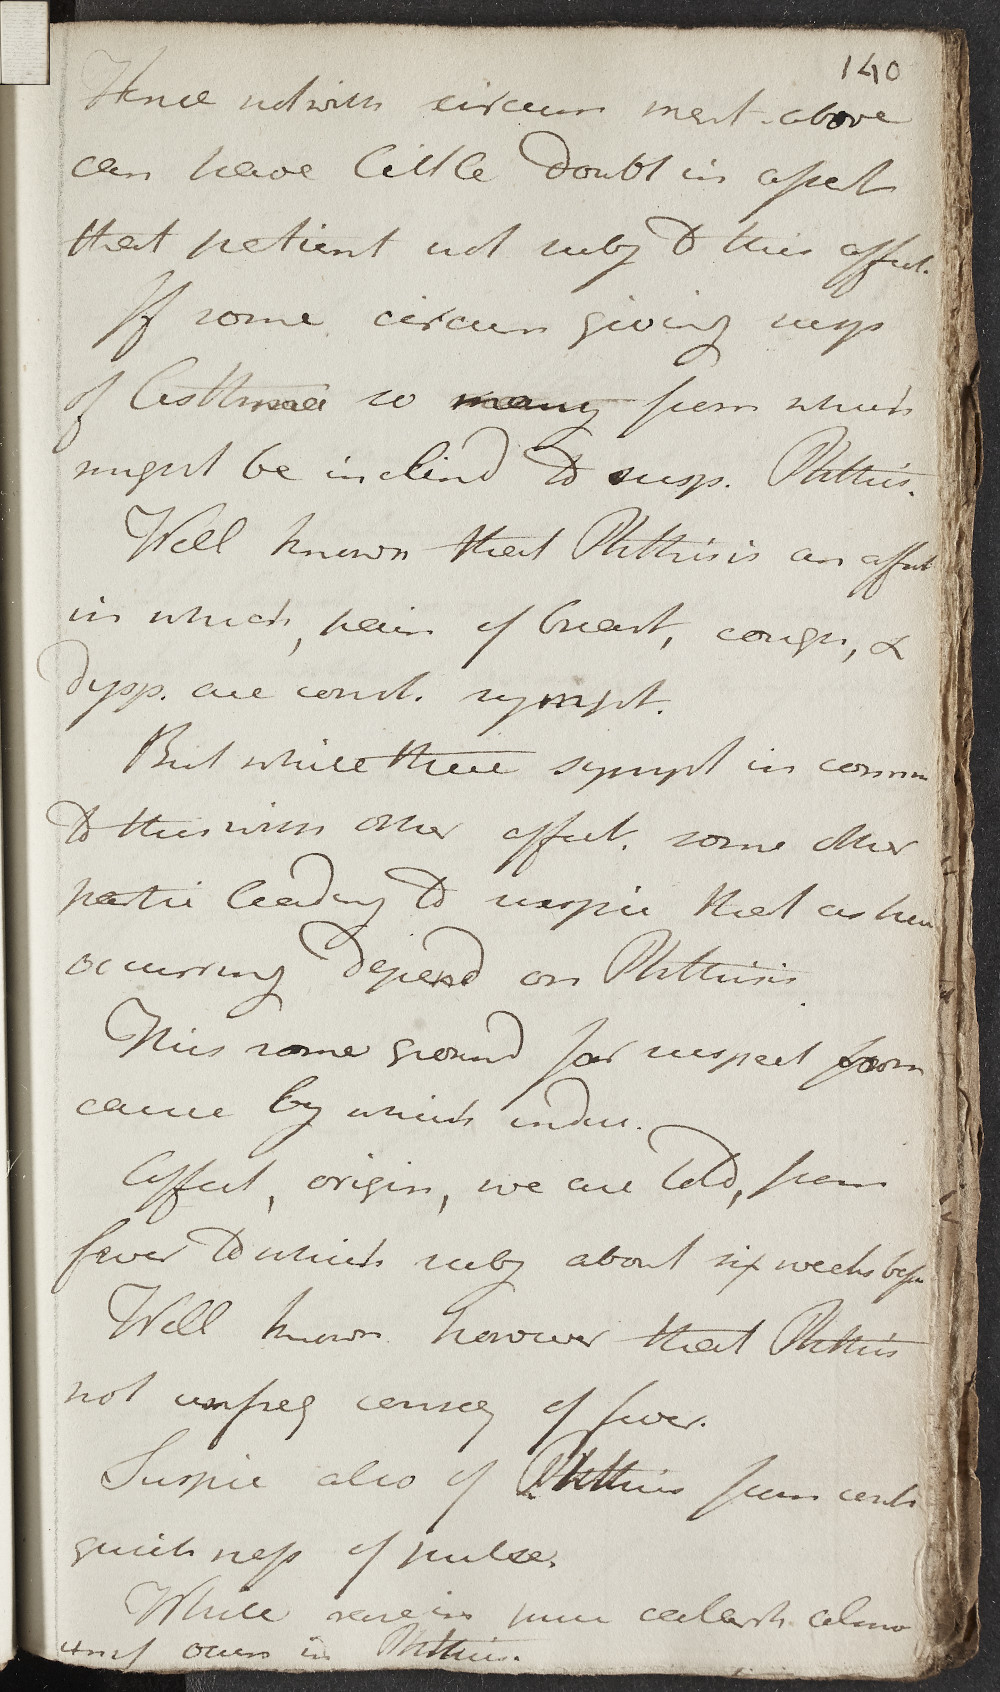 140
Hence notwith circum ment. above
can have little doubt in assert
that patient not subj to this affect.
If some circum giving susp
of Asthma so many from which
might be inclind to susp. Phthis.
Well known that Phthisis an affect
in which, pain of breast, cough, &
dysp. are const. sympt.
But while these sympt in comm
to this with other affect. some other
partic leading to suspic that as here
occurring depend on Phthisis.
This some ground for suspect from
cause by which induc.
Affect, origin, we are told, from
fever to which subj about six weeks befor
Well known however that Phthis
not unfreq conseq of fever.
Suspic also of Phthisis from const
quickness of pulse.
While even in pure catarrh
occurs in Phthisis.